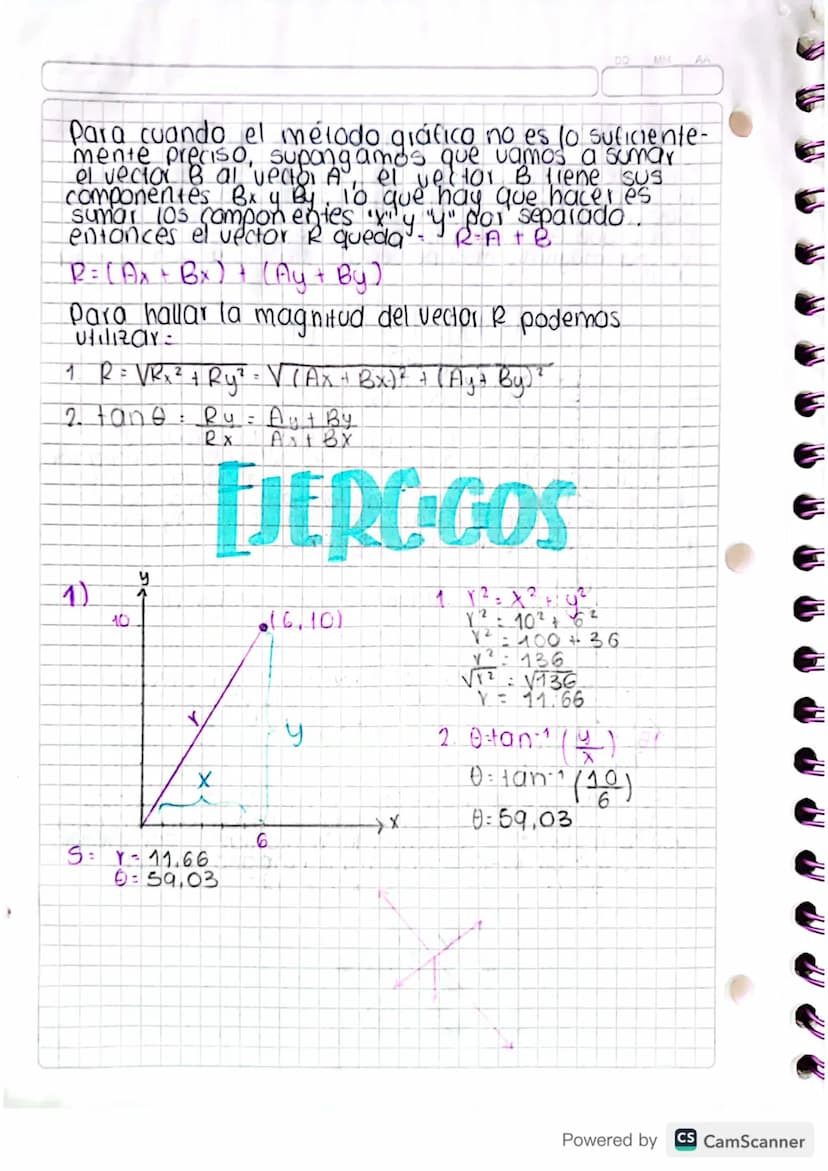 DD MM AA
Para cuando el método gráfico no es lo suficiente-
mente preciso, supongamos que vamos a sumar
el vector B al vector A, el vector B tiene sus
componentes Bx y By, lo que hay que hacer es
sumar los componentes "x" y "y" por separado.
entonces el vector R queda= R=A + B
R=(Ax + Bx) + (Ay + By)
Para hallar la magnitud del vector R podemos
utilizar=
1 R= √Rx² + Ry² = √(Ax + Bx)² + (Ay + By)²
2. tan θ = Ry/Rx = Ay + By/Ax + Bx
EJERCICIOS
1)
y
10
(6,10)
r
y
x
x
6
S= r= 11,66
θ= 59,03
1. r²= x² + y²
r²= 10² + 6²
r²= 100 + 36
r²= 136
√r² = √136
r= 11.66
2. θ=tan⁻¹ (y/x)
θ=tan⁻¹ (10/6)
θ= 59,03
Powered by CS CamScanner